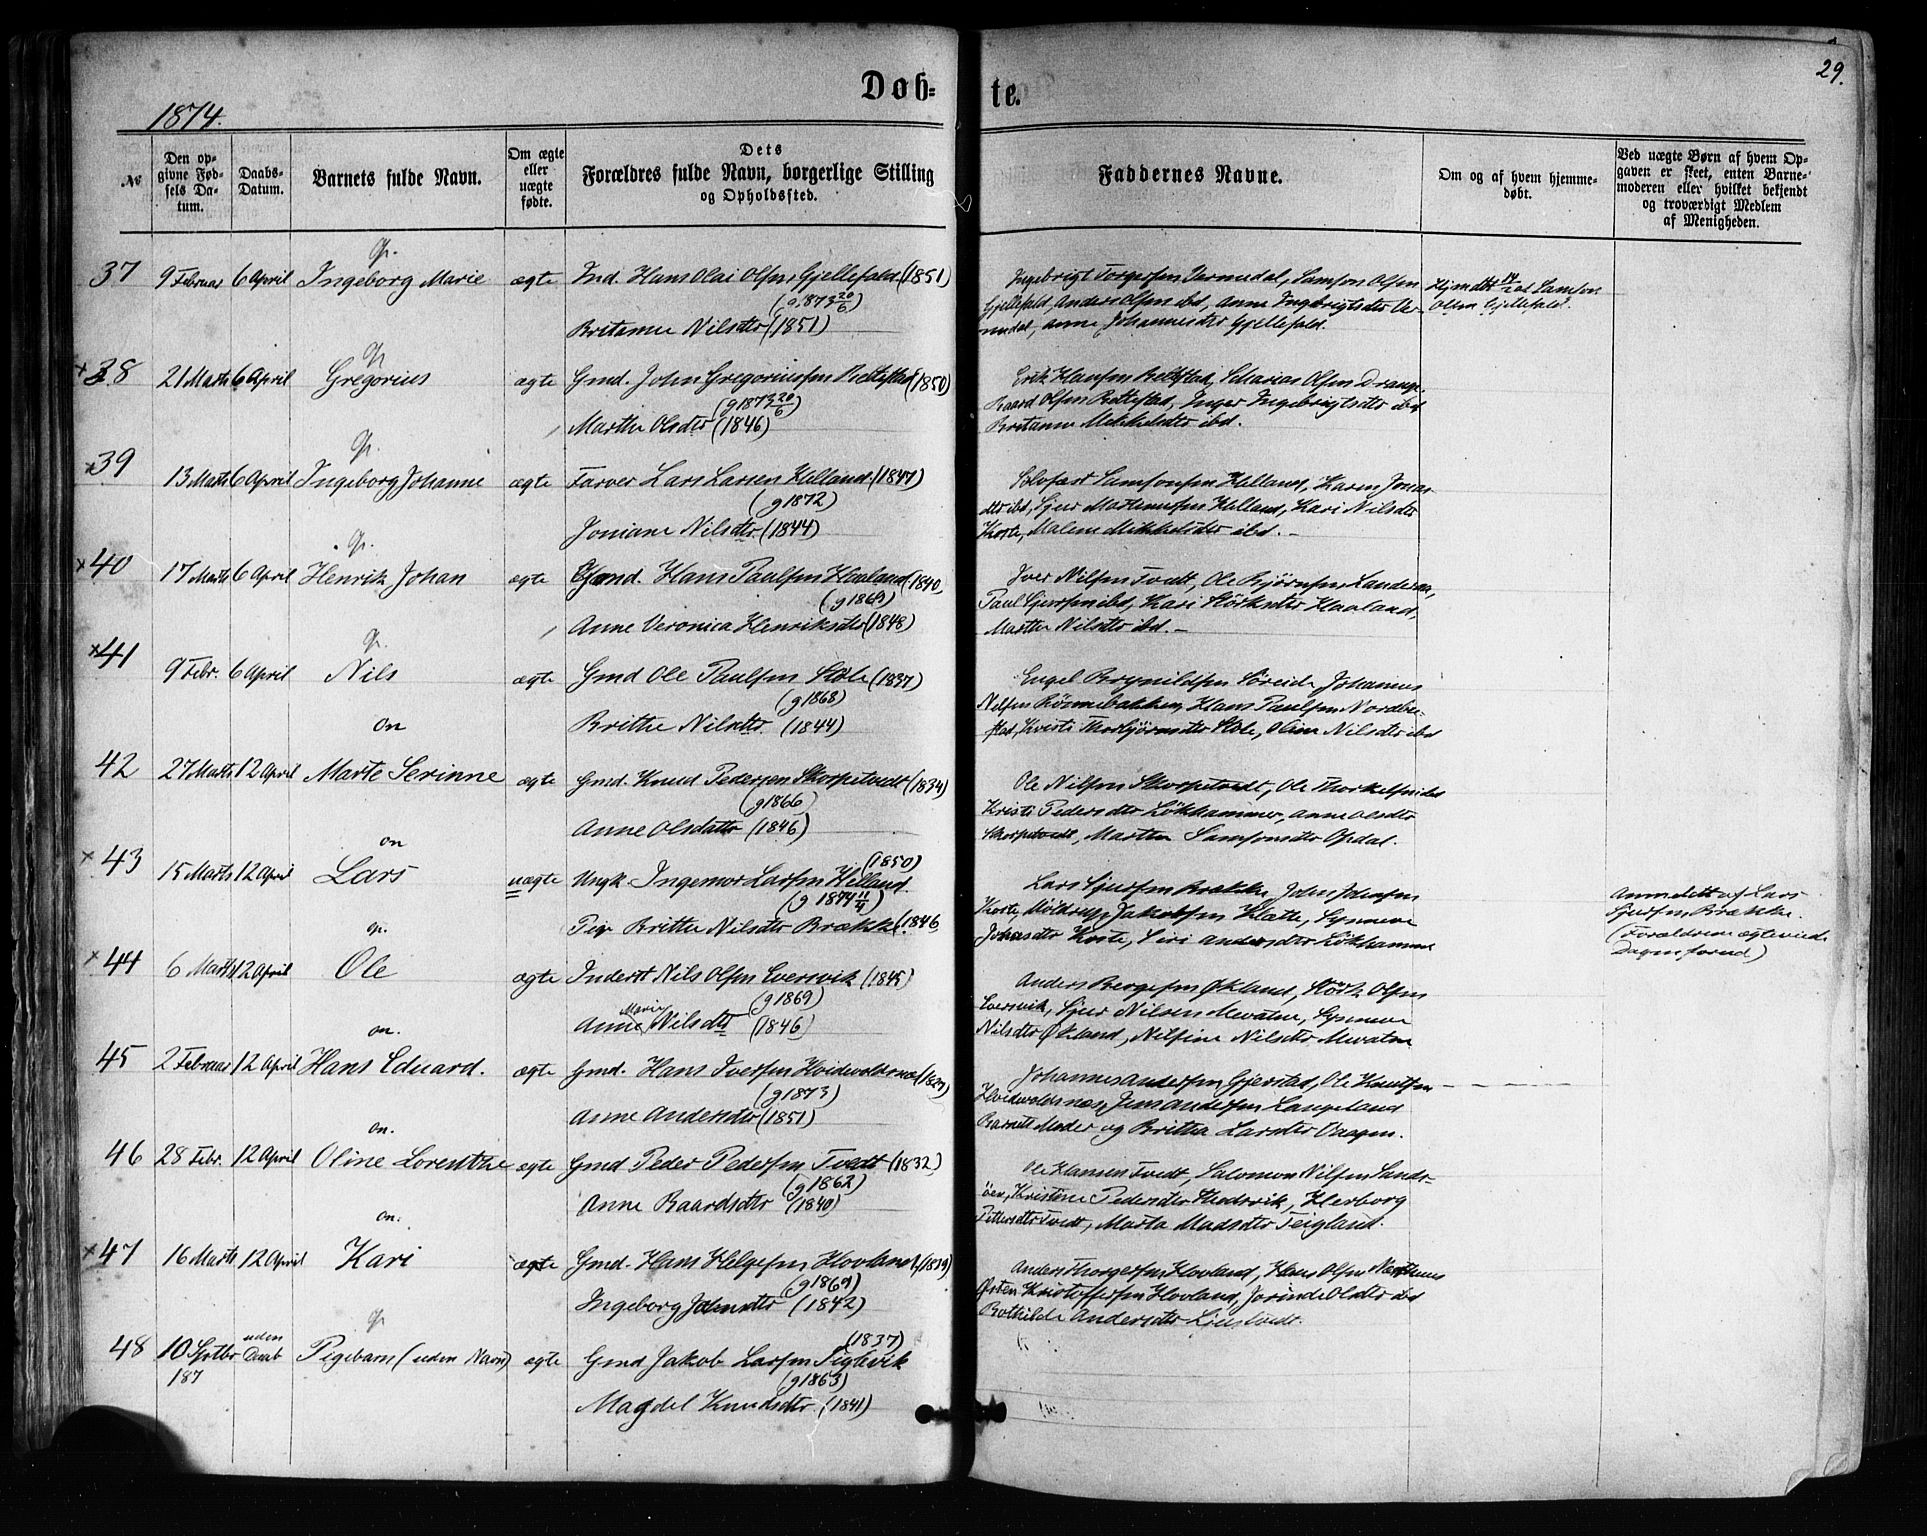 Døb-
te.
29.
1874.
№
Den op-
givne Fød-
sels Da-
tum.
Daabs-
Datum.
Barnets fulde Navn.
Om ægte
eller
uægte
fødte.
Dets
Forældres fulde Navn, borgerlige Stilling
og Opholdssted.
Faddernes Navne.
Om og af hvem hjemme-
døbt.
Ved uægte Børn af hvem Op-
gaven er skeet, enten Barne-
moderen eller hvilket bekjendt
og troværdigt Medlem
af Menigheden.
37 9 Februar 6 April Ingeborg Marie ægte Ind. Hans Olai Olsen Gjellefald (1851)
(g. 1873 20/6)
Britanne Nilsdtr (1851)
Ingebrigt Torgersen Samson Olsen
Gjellefald, Anders Olsen ibd, Anne Ingebrigtsdtr
Anne Johannesdtr Gjellefald.
Samson
Olsen Gjellefald.
38 21 Marts 6 April Gregorius ægte Gmd. John Gregoriussen (1850)
(g 1873 20/6)
Marthe Olsdtr (1846)
Erik Hansen Olsen
Baard Olsen Inger Ingebrigtsdtr ibd
Britanne Mikkelsdtr ibd.
39 13 Marts 6 April Ingeborg Johanne ægte Farver Lars Larsen Helland (1847)
(g 1872)
Joniane Nilsdtr (1844)
Samsonsen Helland, Karen
ibd, Sjur Martinusen Helland, Kari Nilsdtr
Koste, Malene Mikkelsdtr ibd.
40 17 Marts 6 April Henrik Johan ægte Gmd. Hans Paulsen Haaland (1840
(g 1869)
Anne Veronica Henriksdtr (1848)
Iver Nilsen Tvedt, Ole Bjørnsen
Paul Sjursen ibd, Kari Haaland,
Marthe Nilsdtr ibd.
41 9 Febr. 6 April Nils ægte Gmd Ole Paulsen Støle (1837)
(g 1868)
Brithe Nilsdtr (1844)
Engel Brynildsen Søreide Johannes
Nilsen Hans Paulsen
Kristi Thorbjørnsdtr Støle, Oline Nilsdtr ibd
42 27 Marts 12 April Marte Serinne ægte Gmd. Knud Pedersen Skorpetvedt (1834)
(g 1866)
Anne Olsdatter (1846)
Ole Nilsen Skorpetvedt, Ole Thorkelsen ibd
Kristi Pedersdtr Løkhammer, Anne Olsdtr
Skorpetvedt, Marthe Samsonsdtr Opdal.
43 15 Marts 12 April Lars uægte Ungk. Ingemor Larsen Helland. (1850)
(g 1874 11/4)
Pige Brithe Nilsdtr Brække (1846
Lars Sjursen Brække, John Johnsen
Koste, Jakobsen Synneve
Koste, Siri Andersdtr Løkhammer
Anmeldt af Lars
Sjursen Brække.
(Forældrene ægteviede
Dagen forud)
44 6 Marts 12 April Ole ægte Inderst Nils Olsen Eversvik (1845)
(g 1869)
Anne Marie Nilsdtr (1846)
Anders Bergesen Økland, Størk Olsen
Eversvik, Sjur Nilsen Mevatne, Synneve
Nilsdtr Økland, Nilsine Nilsdtr Mevatne
45 2 Februar 12 April Hans Eduard. ægte Gmd. Hans Iversen
(g 1873)
Anne Andersdtr (1851)
Johannes Andersen Gjerstad, Ole Knutsen
Jens Andersen Langeland
Barnets Moder og Britha Larsdtr Vaagen.
46 28 Febr. 12 April Oline Lorenthe ægte Gmd Peder Pedersen Tvedt (1832)
(g 1862)
Anne Baardsdtr (1840)
Ole Hansen Tvedt, Salomon Nilsen Sands-
øen, Kristine Pedersdtr Herborg
Pettersdtr Tvedt, Marta Madsdtr Teigland.
47 16 Marts 12 April Kari ægte Gmd. Hans Helgesen Hovland (1839)
(g 1869)
Ingeborg Johnsdtr (1842)
Anders Thorgersen Hovland, Hans Olsen
Østen Kristoffersen Hovland, Jorinde Olsdtr ibd
Bothilde Andersdtr
48 10 Septbr 187 uden Daab Pigebarn (uden Navn) ægte Gmd Jakob Larsen (1837)
(g 1863)
Magdel Knudsdtr. (1841)